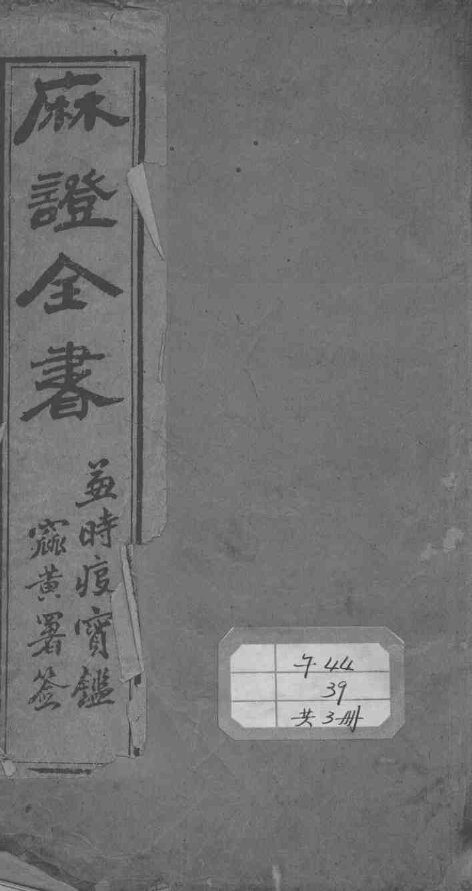 麻證全書
並時疫寶鑑
黃署签
44
39
共3册